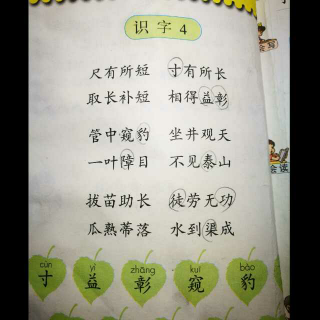 识字4
尺有所短 寸有所长
取长补短 相得益彰
管中窥豹 坐井观天
一叶障目 不见泰山
拔苗助长 徒劳无功
瓜熟蒂落 水到渠成
cùn yì zhāng kuī bào
寸 益 彰 窥 豹
会写
会读